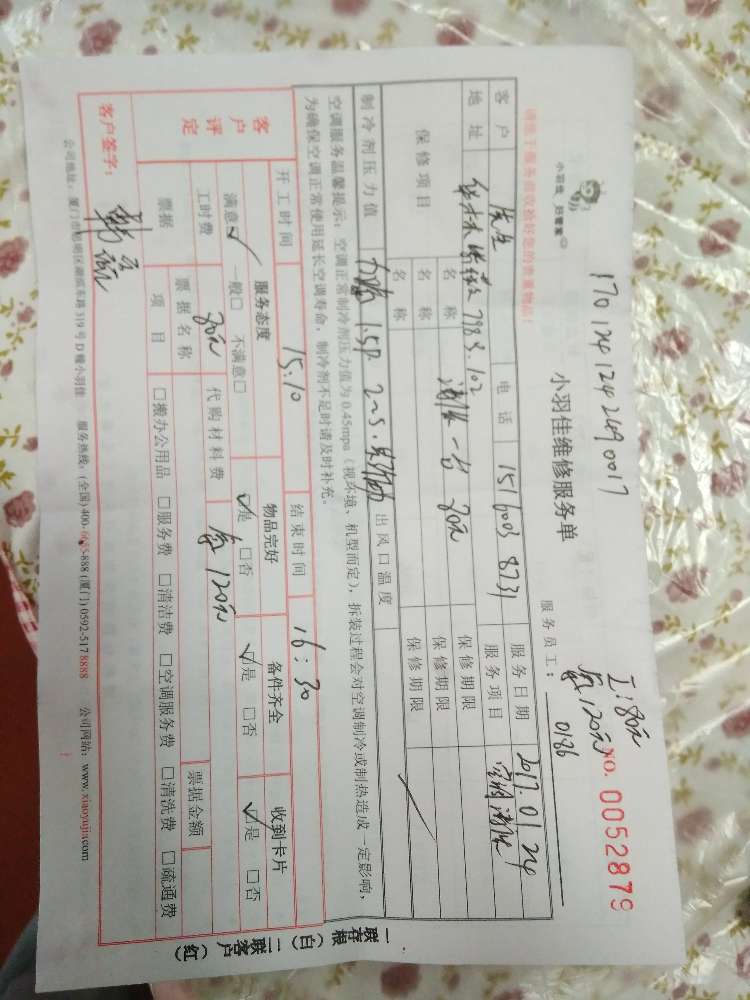 小羽佳 好管家
1701241242490017
小羽佳维修服务单
工:80元
氟120元
NO. 0052879
请您于服务前收拾好您的贵重物品!
服务员工: 0186
客户 先生 电话 15160038231 服务日期 2017.01.24
地址 798号.102 服务项目 空调清洗
保修项目 名称 清洗一台 80元 保修期限
名称 保修期限
名称 保修期限
制冷剂压力值 1.5P 出风口温度
空调服务温馨提示:空调正常制冷剂压力值为0.45mpa(视环境、机型而定),拆装过程会对空调制冷或制热造成一定影响,
为确保空调正常使用延长空调寿命,制冷剂不足时请及时补充。
开工时间 15:10 结束时间 16:30
客户评定 服务态度 物品完好 备件齐全 收到卡片
满意☑ 一般□ 不满意□ ☑是 □否 ☑是 □否 ☑是 □否
工时费 80元 代购材料费 氟120元
票据 票据名称 票据金额
项目 □搬办公用品 □服务费 □清洁费 □空调服务费 □清洗费 □疏通费
客户签字:
公司地址:厦门市思明区湖滨东路319号D幢小羽佳 服务热线:(全国)400-6685-888 (厦门)0592-5178888 公司网站:www.xiaoyujia.com
一联存根(白) 二联客户(红)